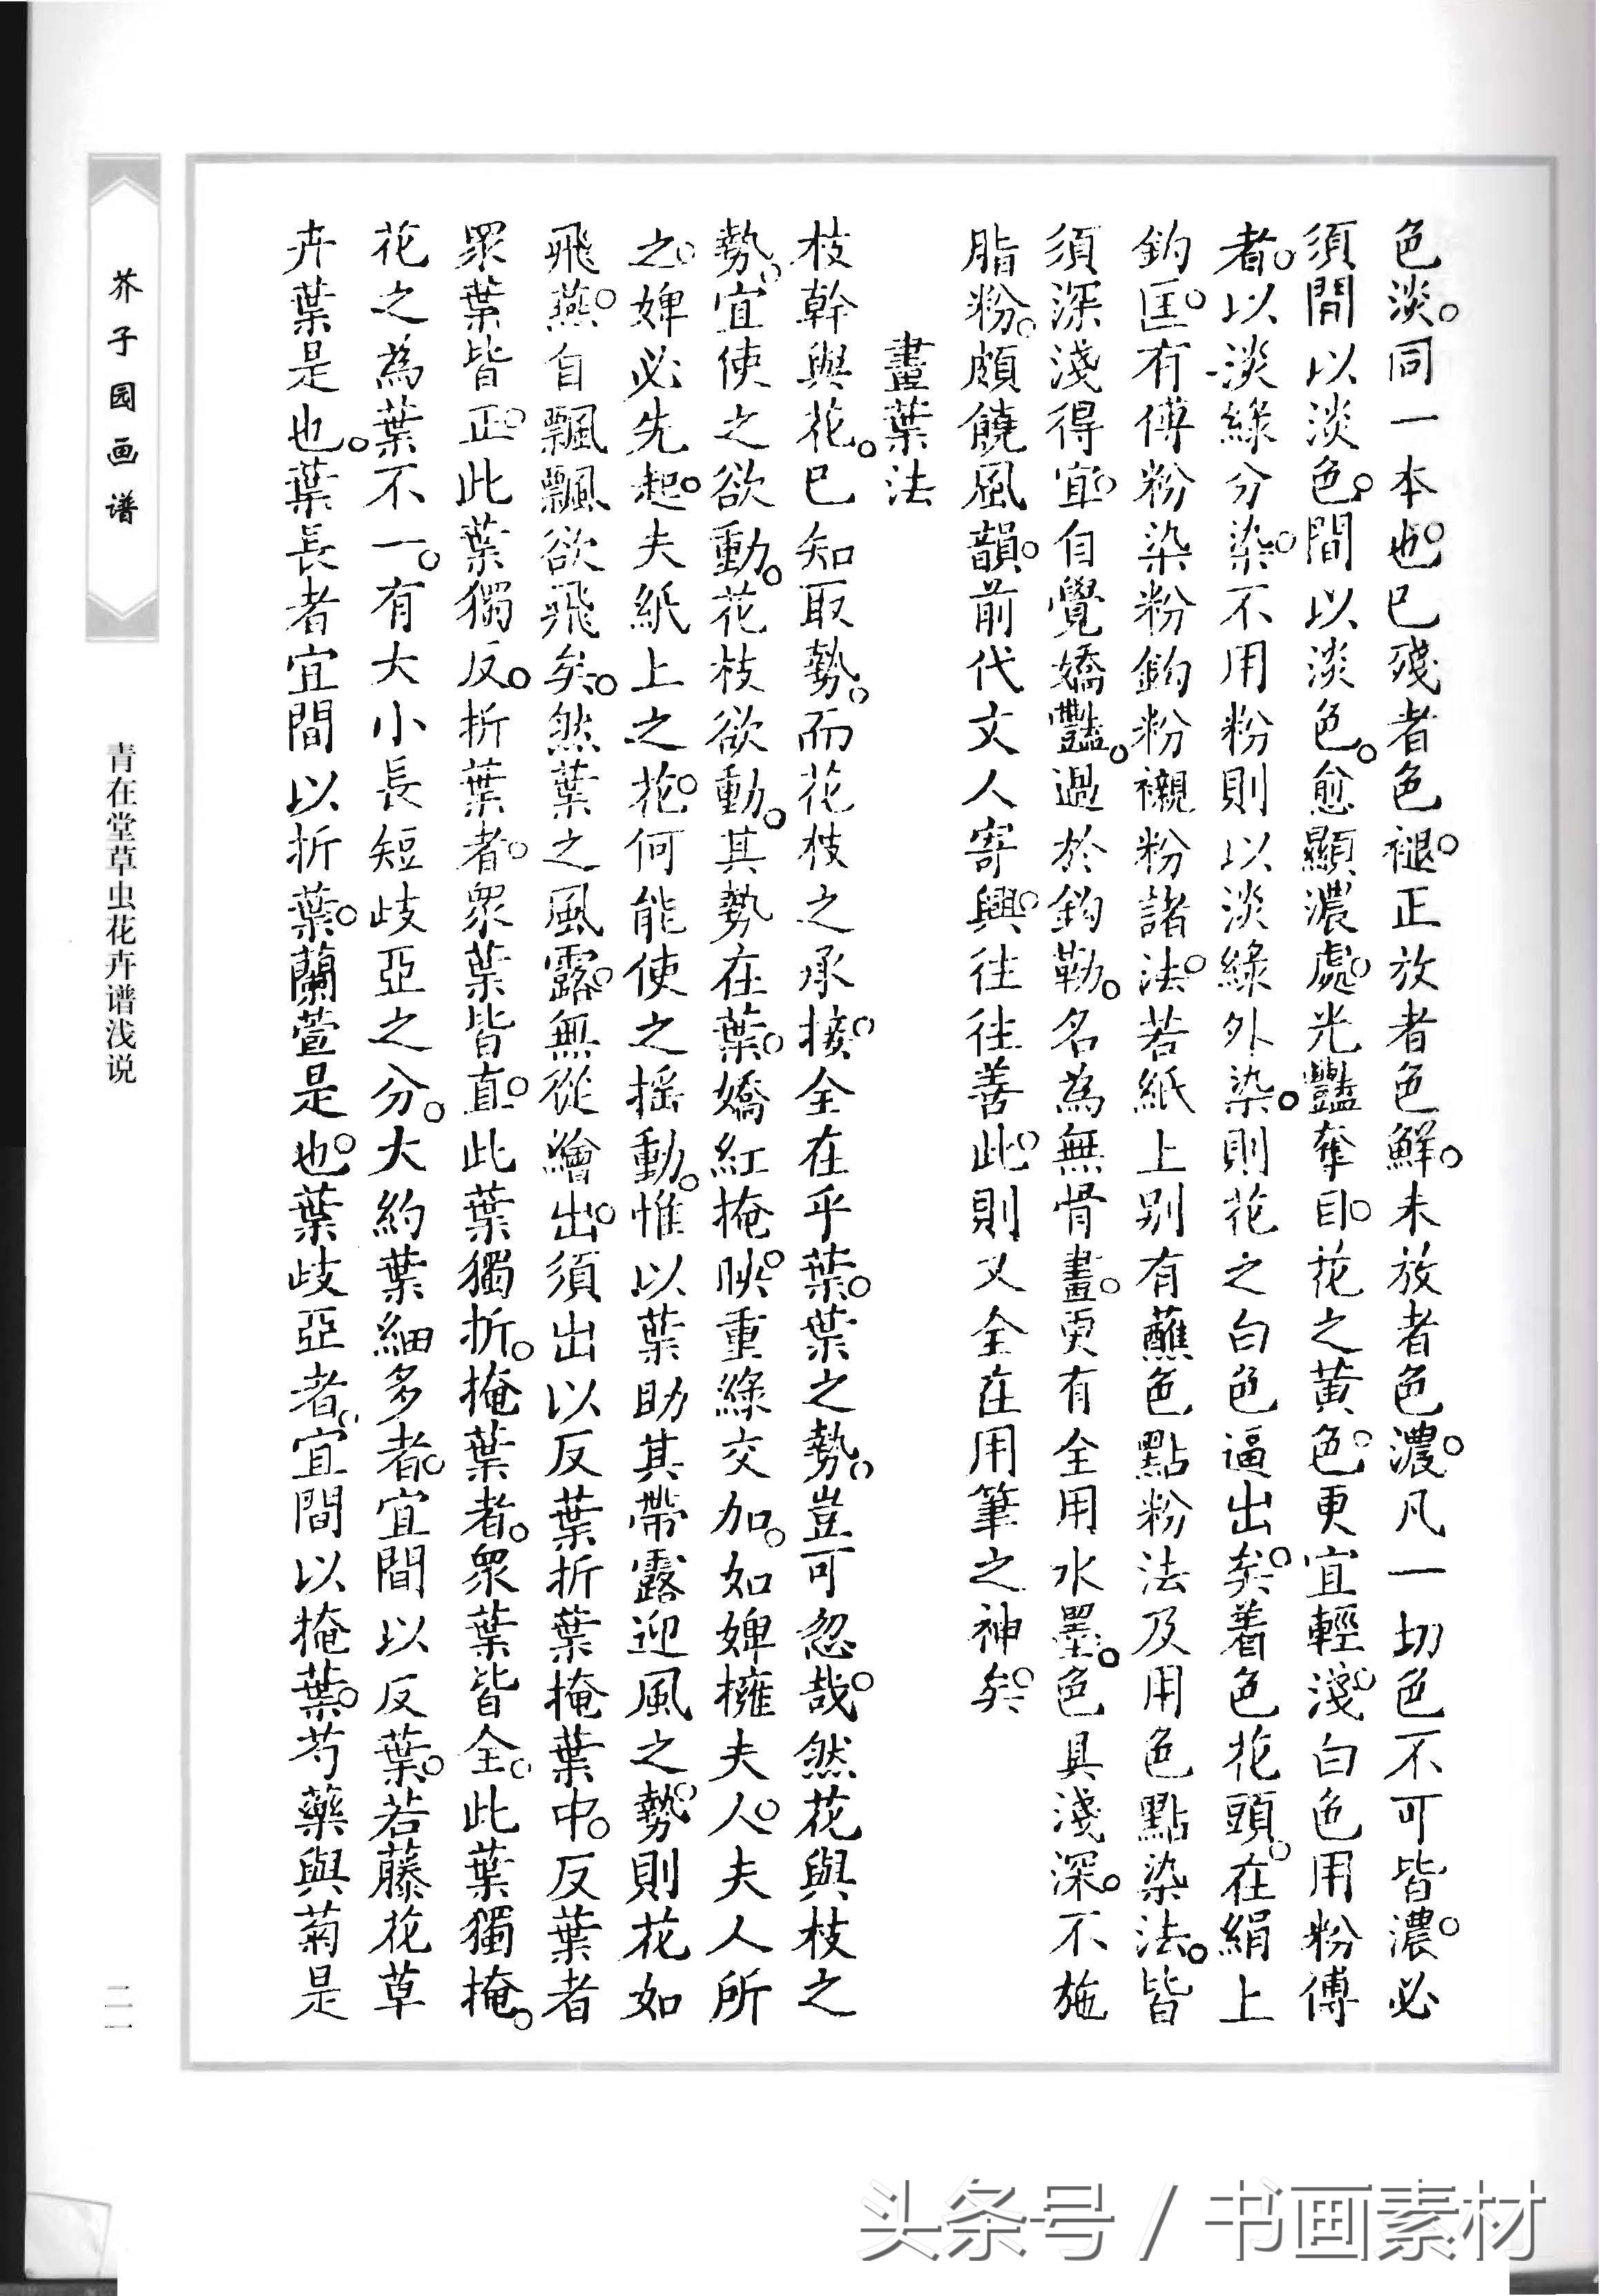 色淡。同一本也。已殘者色褪。正放者色鮮。未放者色濃。凡一切色不可皆濃。必
須間以淡色。間以淡色。愈顯濃處。光豔奪目。花之黃色。更宜輕淺。白色用粉傅
者。以淡綠分染。不用粉則以淡綠外染。則花之白色逼出矣。着色花頭。在絹上
鈎匡。有傅粉染粉鈎粉襯粉諸法。若紙上別有蘸色點粉法及用色點染法。皆
須深淺得宜。自覺嬌豔。過於鈎勒。名為無骨畫。更有全用水墨。色具淺深。不施
脂粉。頗饒風韻。前代文人寄興。往往善此。則又全在用筆之神矣。
畫葉法
枝幹與花。已知取勢。而花枝之承接。全在乎葉。葉之勢。豈可忽哉。然花與枝之
勢。宜使之欲動。花枝欲動。其勢在葉。嬌紅掩映。重綠交加。如婢擁夫人。夫人所
之。婢必先起。夫紙上之花。何能使之搖動。惟以葉助其帶露迎風之勢。則花如
飛燕。自飄飄欲飛矣。然葉之風露。無從繪出。須出以反葉折葉掩葉中。反葉者
眾葉皆正。此葉獨反。折葉者。眾葉皆直。此葉獨折。掩葉者。眾葉皆全。此葉獨掩。
花之為葉不一。有大小長短歧亞之分。大約葉細多者。宜間以反葉。若藤花草
卉葉是也。葉長者宜間以折葉。蘭萱是也。葉歧亞者。宜間以掩葉。芍藥與菊是
芥子园画谱
青在堂草虫花卉谱浅说
二一
头条号 / 书画素材